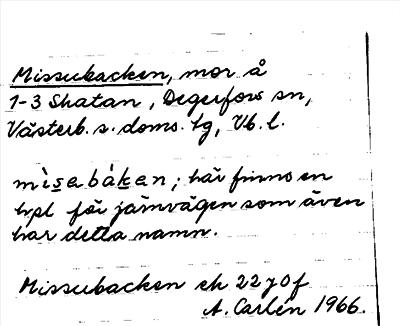 Missubacken, mor å
1-3 Skatan, Degerfors sn,
Västerb. s. doms. tg, Vb. l.
mìsabákan; här finns en
hpl för järnvägen som även
har detta namn.
Missubacken ek 22 7 0 f
A. Carlén 1966.